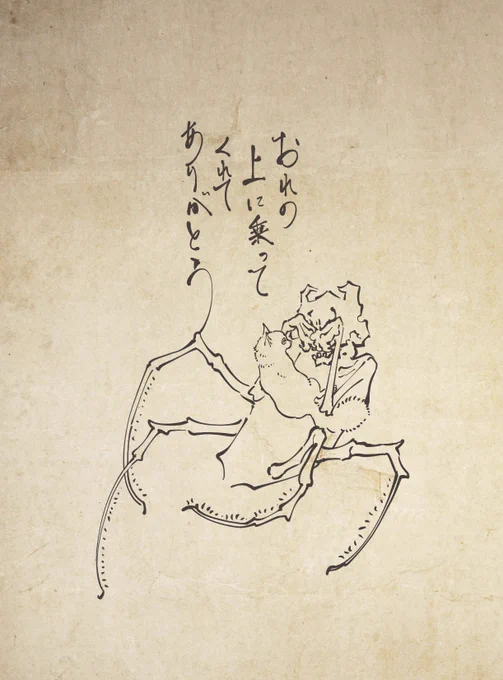 おれの
上に乗って
くれて
ありがとう